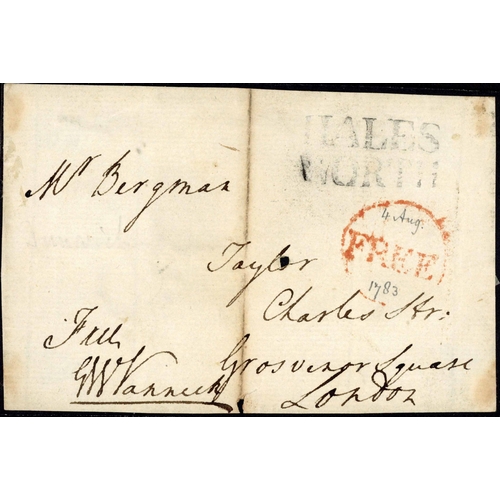 HALES
WORTH
Mr Bergman
4 Aug.
FREE
1783
Taylor
Charles Str:
Free
Grosvenor Square
GWVanneck
London